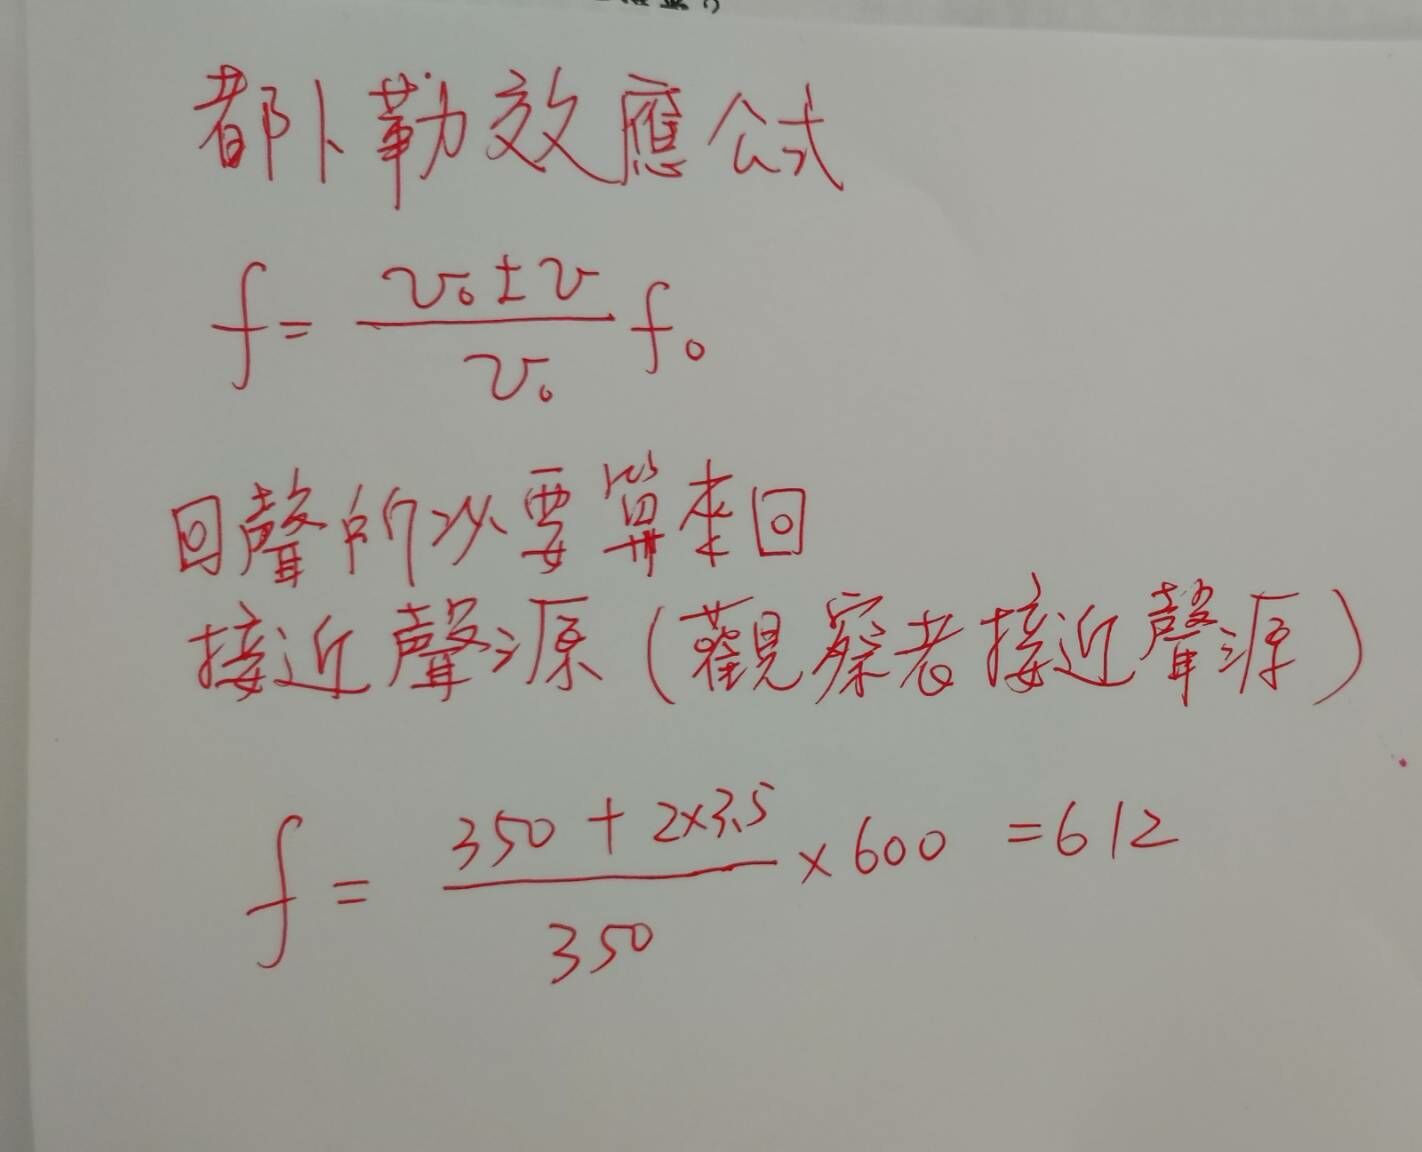 都卜勒效應公式
f = (v₀ ± v) / v₀ f₀
回聲所以要算來回
接近聲源(觀察者接近聲源)
f = (350 + 2×3.5) / 350 × 600 = 612